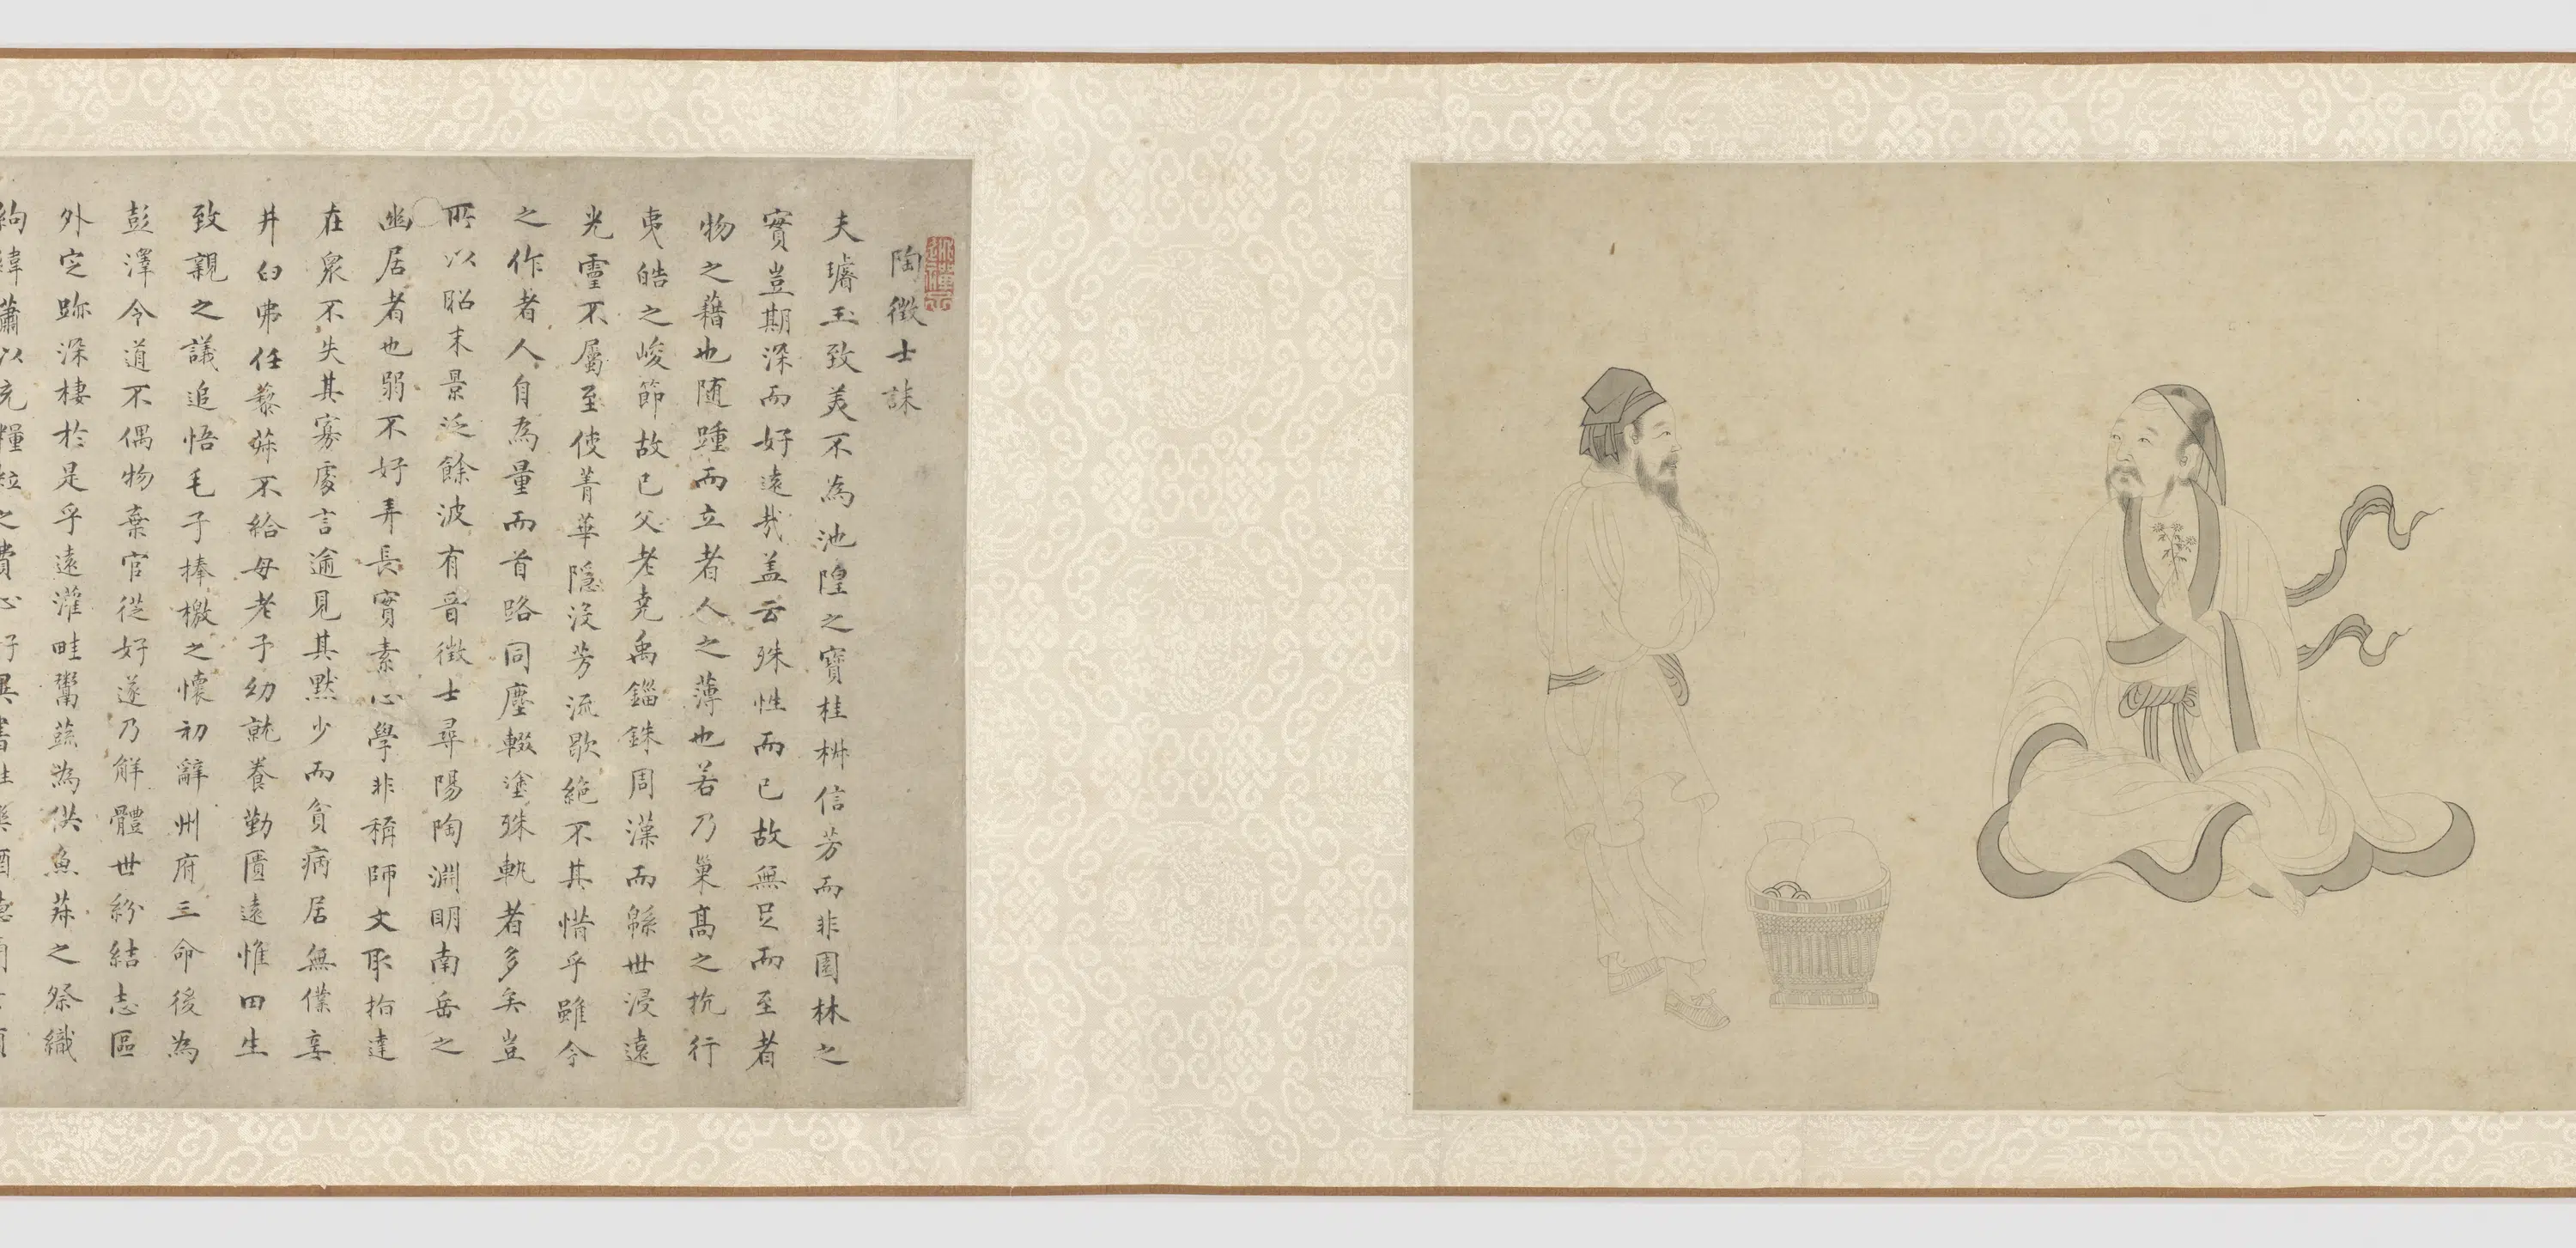 陶徵士誄
夫璿玉致美不為池隍之寶桂椒信芳而非園林之
實豈期深而好遠哉盖云殊性而已故無足而至者
物之藉也随踵而立者人之薄也若乃巢髙之抗行
夷皓之峻節故已父老堯禹錙銖周漢而緜世浸遠
光靈不屬至使菁華隱沒芳流歇絶不其惜乎雖今
之作者人自為量而首路同塵輟塗殊軌者多矣豈
所以昭末景泛餘波有晉徵士尋陽陶淵明南岳之
幽居者也弱不好弄長實素心學非稱師文取指達
在衆不失其寡處言逾見其默少而貧病居無僕妾
井臼弗任藜菽不給母老子幼就養勤匱遠惟田生
致親之議追悟毛子捧檄之懷初辭州府三命後為
彭澤令道不偶物棄官從好遂乃解體世紛結志區
外定跡深棲於是乎遠灌畦鬻蔬為供魚菽之祭織
絇緯蕭以充糧粒之費心好異書性樂酒德